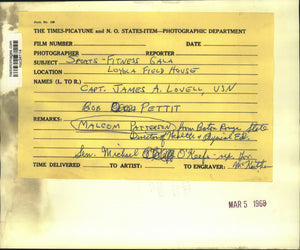 Form No. 108
THE TIMES-PICAYUNE and N. O. STATES-ITEM—PHOTOGRAPHIC DEPARTMENT
FILM NUMBER DATE
PHOTOGRAPHER REPORTER
SUBJECT SPORTS-FITNESS GALA
LOCATION LOYOLA FIELD HOUSE
NAMES (L. TO R.) CAPT. JAMES A. LOVELL, USN
BOB PETTIT
REMARKS: MALCOM PATTERSON from Baton Rouge State
Director of Health & Physical Ed.
Sen. Michael O'Keefe - rep. Gov.
McKeithen
TIME DELIVERED TO ARTIST: TO ENGRAVER:
MAR 5 1969